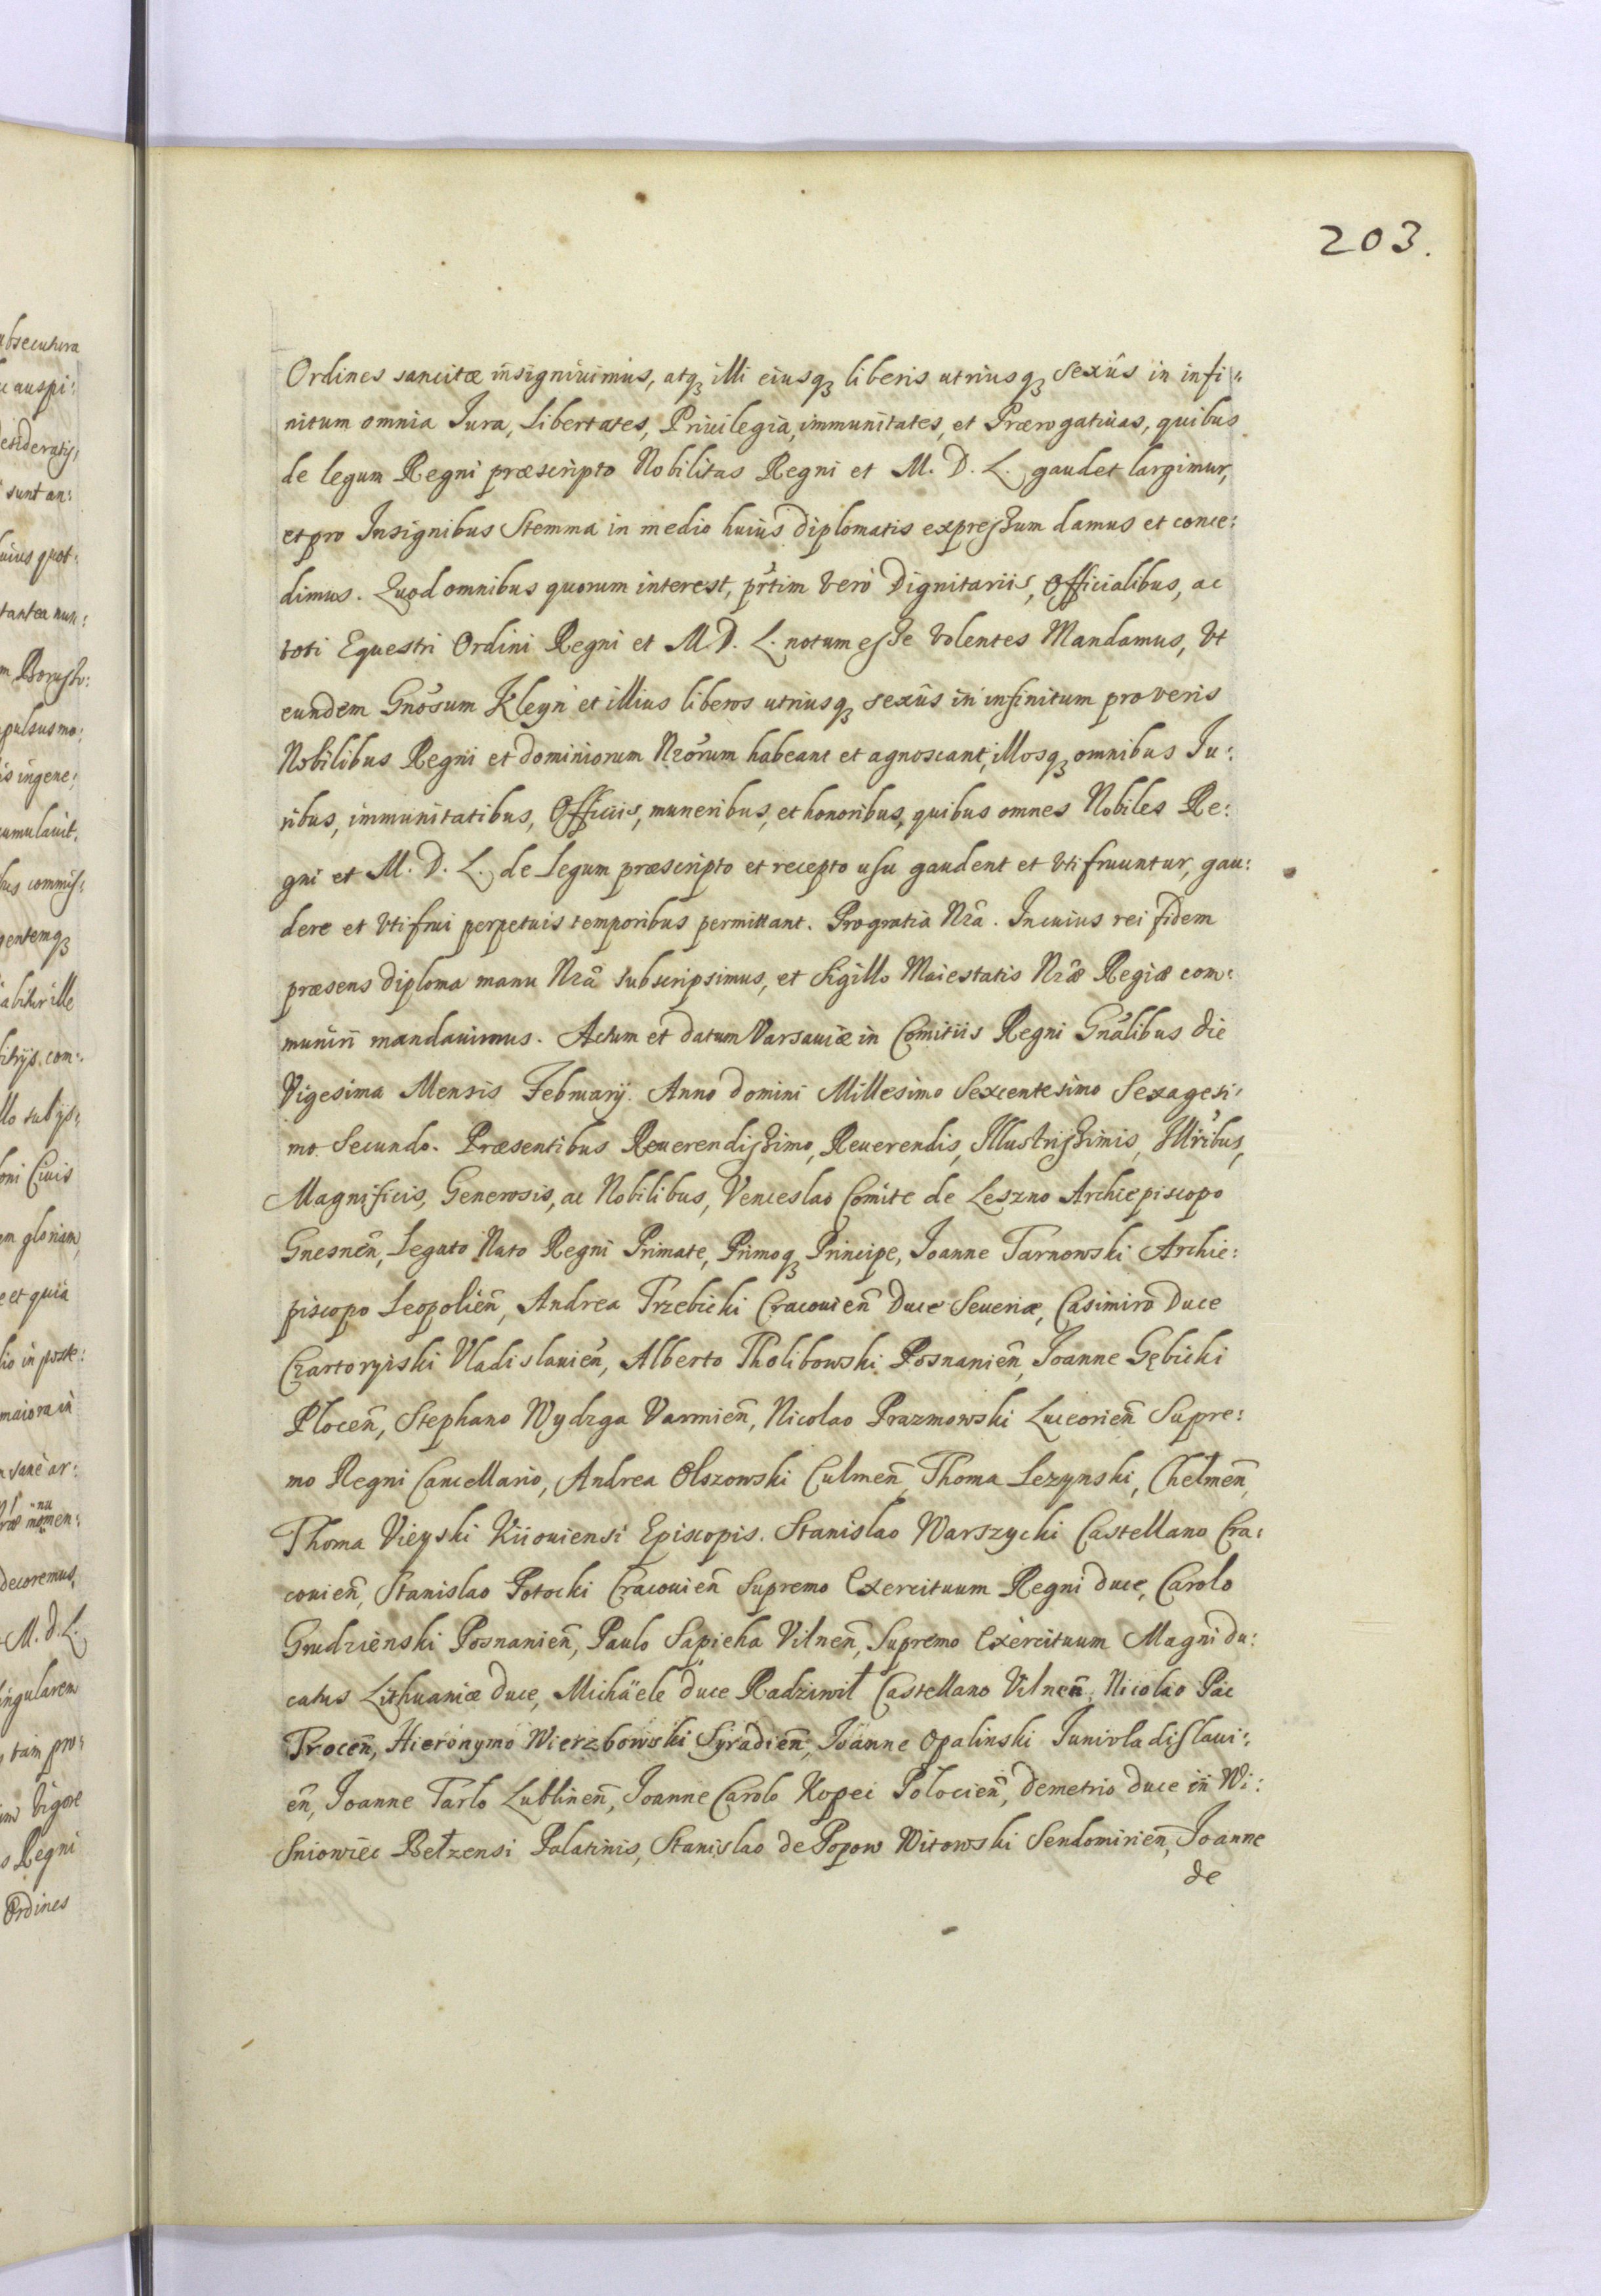 203.
Ordines sancitæ insigniuimus, atqꝫ illi eiusqꝫ liberis utriusqꝫ sexûs in infi:
nitum omnia Iura, Libertates, Priuilegia, immunitates, et Prærogatiuas, quibus
de legum Regni præscripto Nobilitas Regni et M. D. L. gaudet largimur,
et pro Insignibus Stemma in medio huius diplomatis expressum damus et conce:
dimus. Quod omnibus quorum interest, prtim verò Dignitariis, Officialibus, ac
toti Equestri Ordini Regni et M. D. L. notum esse volentes Mandamus, Vt
eundem Gnosum Kleyn et illius liberos utriusqꝫ sexûs in infinitum pro veris
Nobilibus Regni et dominiorum Nrorum habeant et agnoscant, illosqꝫ omnibus Iu:
ribus, immunitatibus, Officiis, muneribus, et honoribus, quibus omnes Nobiles Re:
gni et M. D. L. de Legum præscripto et recepto usu gaudent et vtifruuntur, gau:
dere et vtifrui perpetuis temporibus permittant. Pro gratia Nrâ. In cuius rei fidem
præsens diploma manu Nrâ subscripsimus, et Sigillo Maiestatis Nræ Regiæ com:
muniri mandauimus. Actum et datum Varsauiæ in Comitiis Regni Gnalibus die
Vigesima Mensis Februarij. Anno domini Millesimo Sexcentesimo Sexagesi:
mo Secundo. Præsentibus Reuerendissimo, Reuerendis, Illustrissimis, Illribus,
Magnificis, Generosis, ac Nobilibus, Venceslao Comite de Leszno Archiepiscopo
Gnesnen̄, Legato Nato Regni Primate, Primoqꝫ Principe, Ioanne Tarnowski Archie:
piscopo Leopolien̄, Andrea Trzebicki Cracouien̄ Duce Seueriæ, Casimiro Duce
Czartoryiski Vladislauien̄, Alberto Tholibowski Posnanien̄, Ioanne Gębicki
Plocen̄, Stephano Wydzga Varmien̄, Nicolao Prazmowski Luceorien̄ Supre:
mo Regni Cancellario, Andrea Olszowski Culmen̄, Thoma Lezynski, Chełmen̄,
Thoma Vieyski Kiiouiensi Episcopis. Stanislao Warszycki Castellano Cra:
couien̄, Stanislao Potocki Cracouien̄ Supremo Exercituum Regni duce, Carolo
Grudzienski Posnanien̄, Paulo Sapieha Vilnen̄, Supremo Exercituum Magni du:
catus Lithuaniæ duce, Michäele duce Radziwił Castellano Vilnen̄, Nicolao Pac
Trocen̄, Hieronymo Wierzbowski Syradien̄, Ioanne Opalinski Iunivladislaui:
en̄, Ioanne Tarlo Lublinen̄, Ioanne Carolo Kopec Polocien̄, Demetrio duce in Wi:
sniowiec Bełzensi Palatinis, Stanislao de Popow Witowski Sendomirien̄, Ioanne
de